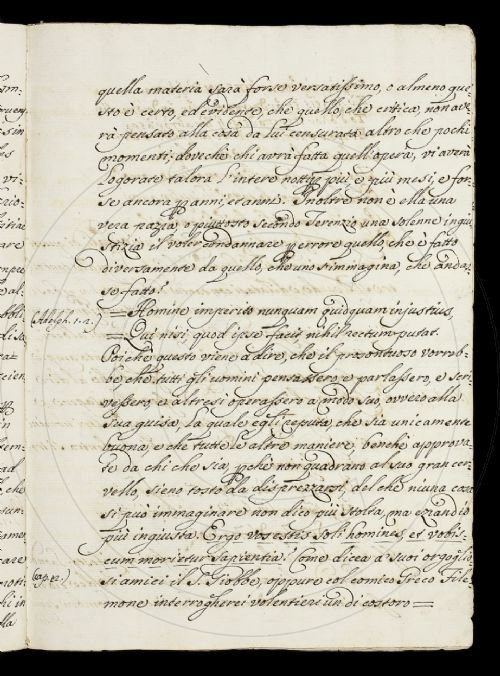 quella materia sarà forse versatissimo, o almeno que-
sto è certo, ed evidente, che quello, che critica, non ave-
rà pensato alla cosa da lui censurata altro che pochi
momenti; dovechè chi avrà fatta quell'opera, vi averà
logorate talora l'intere nottate più e più mesi, e for-
se ancora p anni, et anni. Inoltre non è ella una
vera pazzia, o piuttosto secondo Terenzio una solenne ingiu-
stizia il voler condannare p errore quello, che è fatto
diversamente da quello, che uno s'immagina, che andas-
se fatto?
(Adelph. 1. 2.) = Homine imperito nunquam quidquam injustius,
= Qui nisi quod ipse facit, nihil rectum putat.
Poichè questo viene a dire, che il prosontuoso vorreb-
be, che tutti gli uomini pensassero, e parlassero, e scri-
vessero, e altresì operassero a modo suo, ovvero alla
sua guisa, la quale egli reputa, che sia unicamente
buona, e che tutte le altre maniere, benchè approva-
te da chi che sia, pchè non quadrano al suo gran cer-
vello, sieno tosto da disprezzarsi, del che niuna cosa
si può immaginare non dico più stolta, ma eziandio
più ingiusta. Ergo vos estis soli homines, et vobis-
cum morietur sapientia? Come dicea a' suoi orgoglio-
(cap. 12.) si amici il S. Giobbe, oppure col comico Greco File-
mone interrogherei volentieri un di costoro =